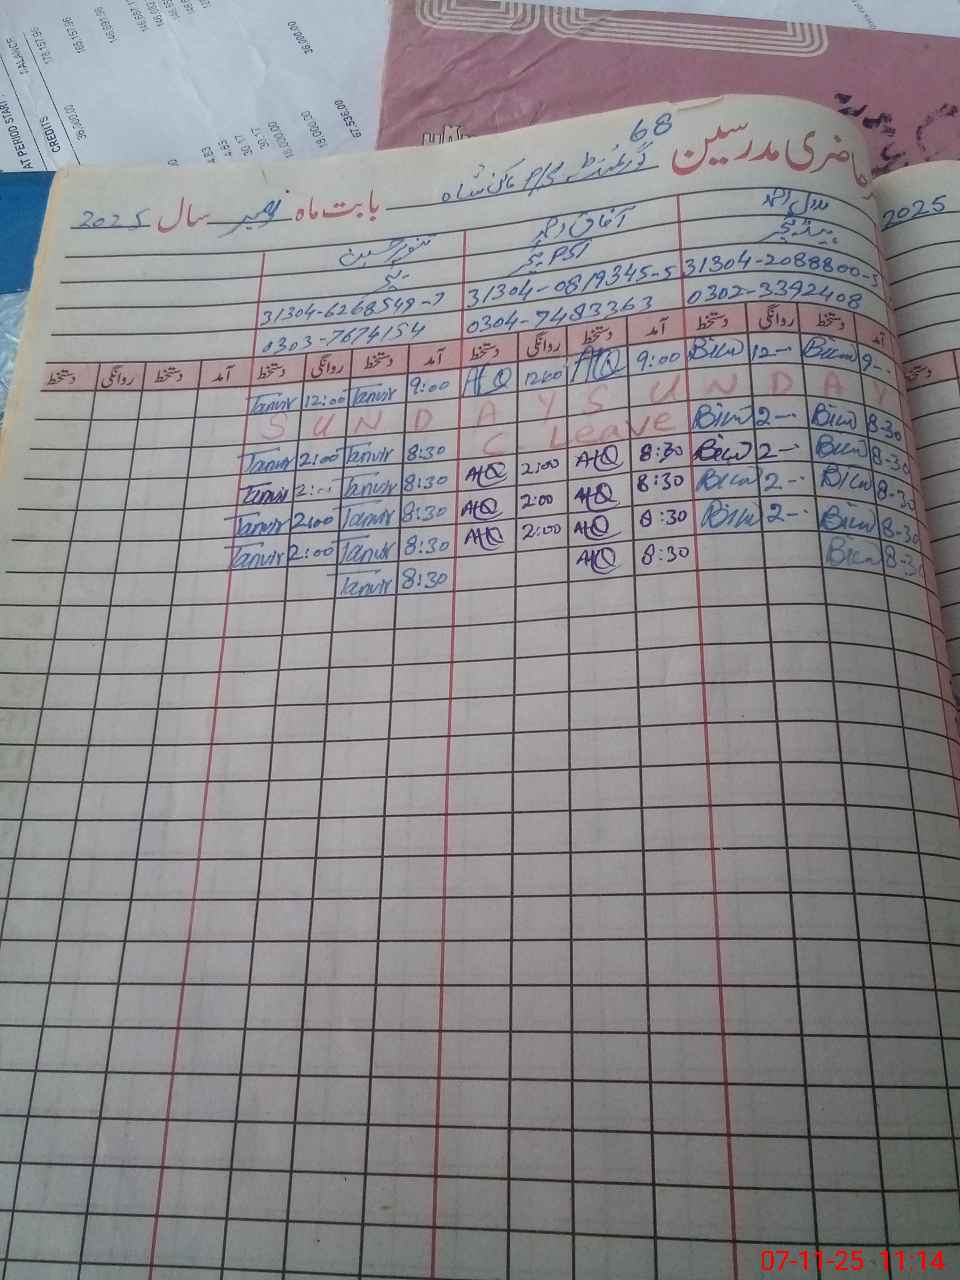 حاضری مدرسین 68 گورنمنٹ P/S بابت ماہ نومبر سال 2025
2025
بلال احمد آفاق احمد تنویر حسین
ہیڈ ٹیچر PST ٹیچر ٹیچر
31304-2088800-5 31304-0819345-5 31304-6268549-7
0302-3392408 0304-7483363 0303-7674154
آمد دستخط روانگی دستخط آمد دستخط روانگی دستخط آمد دستخط روانگی دستخط آمد دستخط روانگی دستخط
9-- 12-- 9:00 AHQ 12:00 AHQ 9:00 Tanvir 12:00 Tanvir
SUNDAY SUNDAY
8-30 2-- C. Leave 8:30 Tanvir 2:00 Tanvir
8-30 2-- 8:30 AHQ 2:00 AHQ 8:30 Tanvir 2:-- Tanvir
8-30 2-- 8:30 AHQ 2:00 AHQ 8:30 Tanvir 2:00 Tanvir
8-30 2-- 8:30 AHQ 2:00 AHQ 8:30 Tanvir 2:00 Tanvir
8-30 8:30 AHQ 8:30 Tanvir
AT PERIOD START
CREDITS
BALANCE
36,000.00
67,536.00
18,000.00
30.17
4.65
4.53
178,157.95
07-11-25 11:14